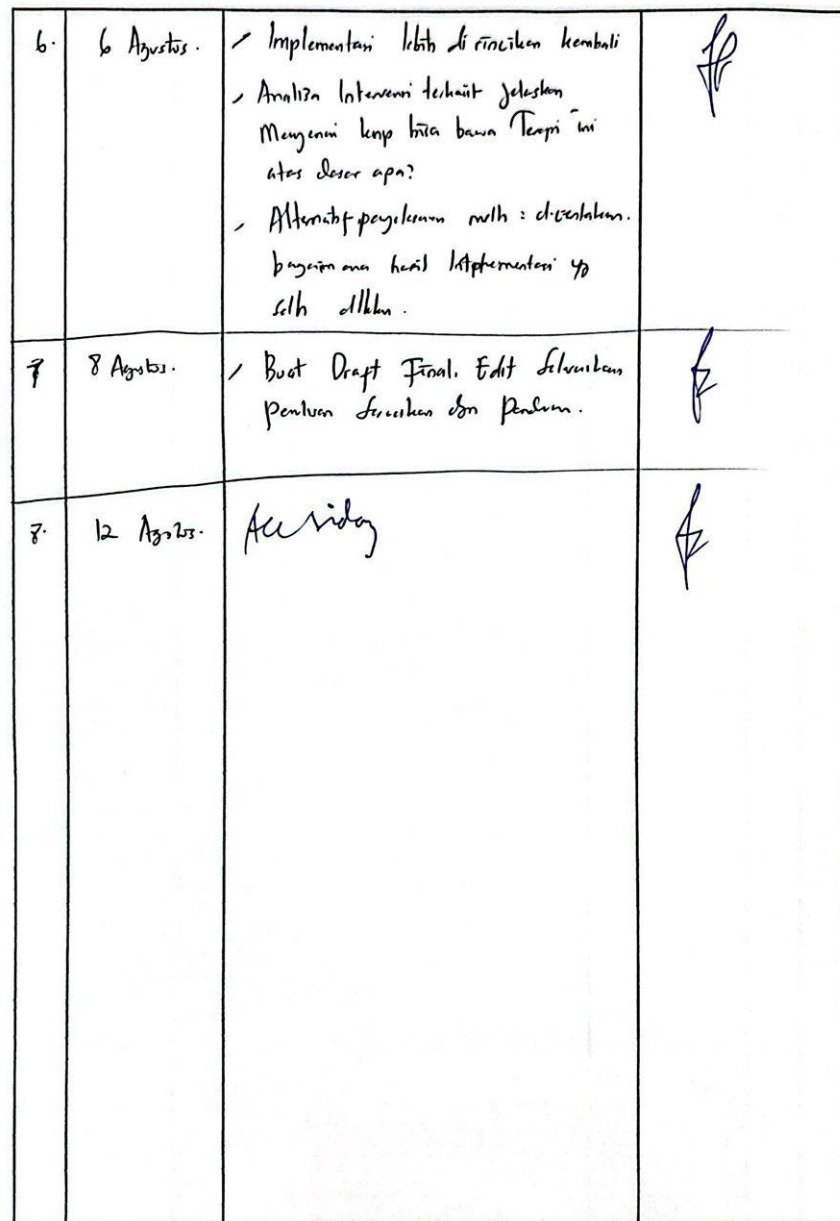 6. 6 Agustus. - Implementasi lebih di rincikan kembali
- Analisa Intervensi terkait Jelaskan
Mengenai knp bisa bawa Terapi ini
atas dasar apa?
- Alternatif
bagaimana hasil Implementasi yg
tlh
7 8 Agustus. - Buat Draft Final. Edit
sesuaikan dgn Panduan.
8. 12 Agustus. Acc sidang